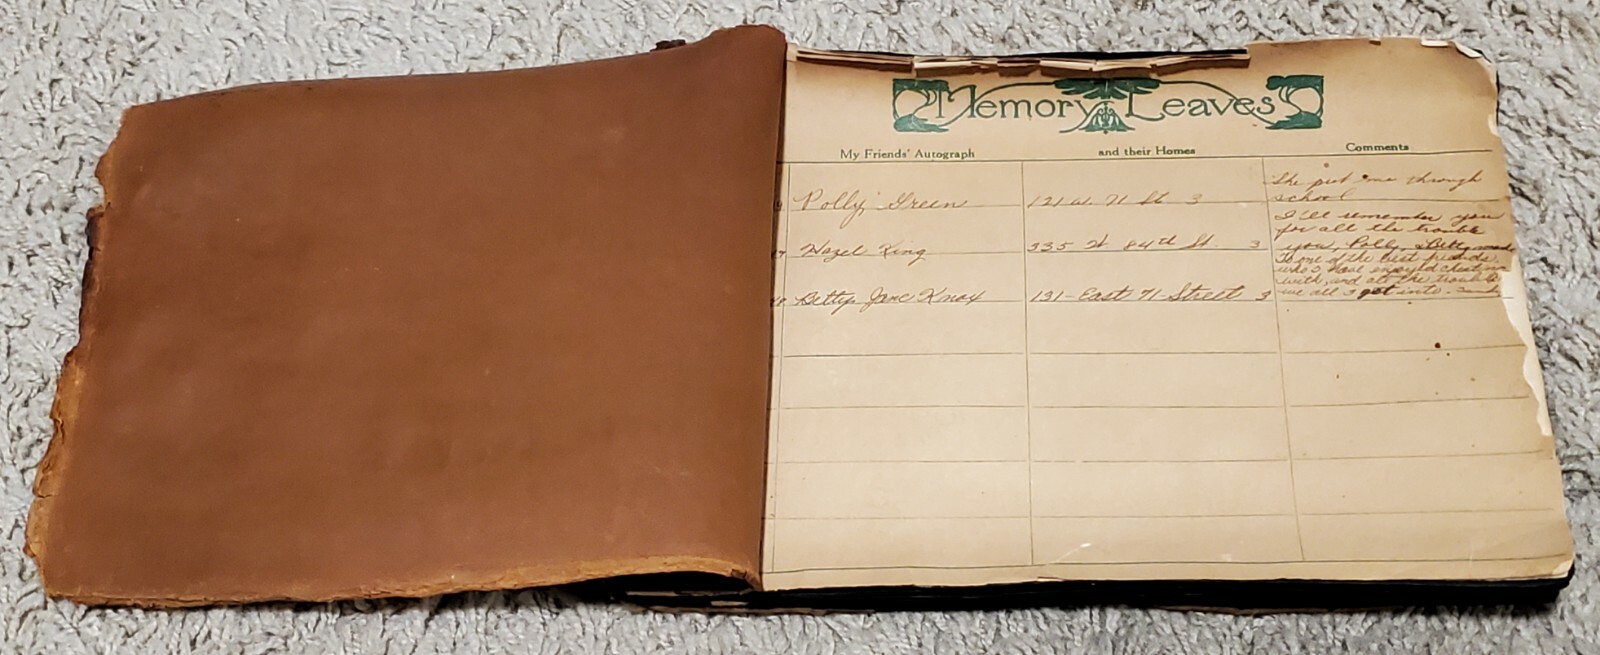 Memory Leaves
My Friends' Autograph and their Homes Comments
Polly Green 121 W. 71 St. 3 She put me through
school
Hazel King 335 W 84th St. 3 I'll remember you
for all the trouble
you, Polly, & Betty made
Betty Jane Knox 131-East 71 Street 3 To one of the best friends
who I have enjoyed
with, and all the trouble
we all 3 get into.